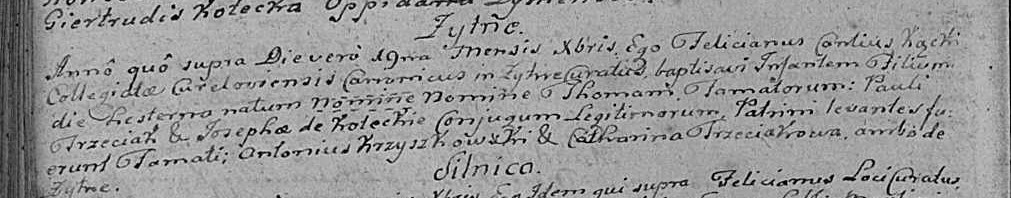 Giertrudis Kolecka Oppidana
Zytñe.
Annô quô supra Die verò 19na Mensis Xbris, Ego Felicianus Cantius Kącki
Collegiatæ Cureloviensis Canonicus in Zytne Curatus, baptisavi Infantem Filium
die hesterna natum Nomine Nomine Thomam Famatorum: Pauli
Trzeciak & Josephæ de Koleckie Conjugum Legitimorum, Patrini levantes fu:
erunt Famati; Antonius Krzyszkowski & Catharina Trzeciakowa, ambo de
Zytne.
Silnica.
Xbris Ego Idem qui supra Felicianus Loci Curatus,